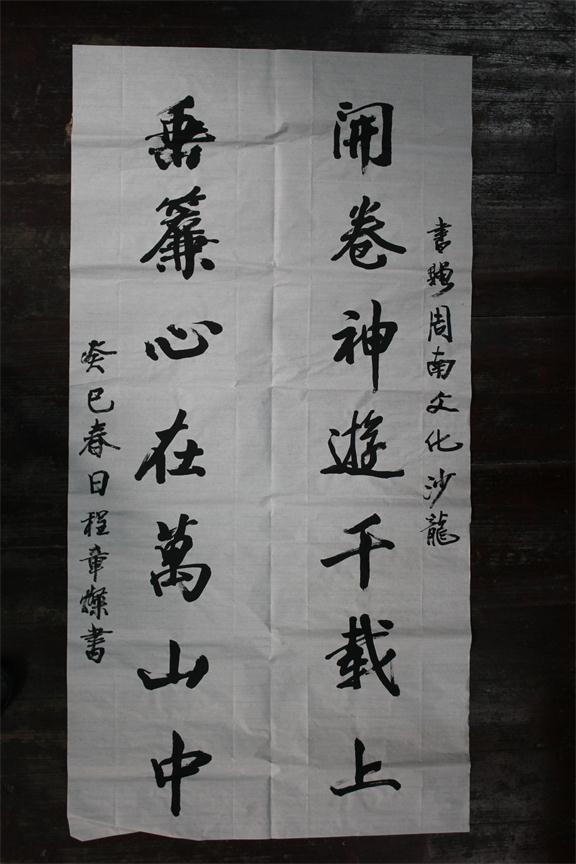 書贈周南文化沙龍
開卷神遊千載上
垂簾心在萬山中
癸巳春日程章燦書